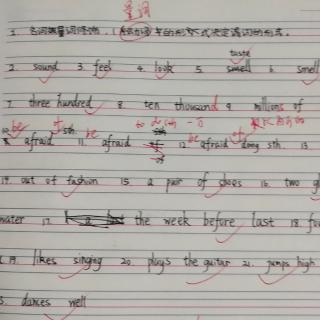 量词
1. 名词被量词修饰, (量词) 中的形式决定谓词的形式.
taste
2. sound 3. feel 4. look 5. smell 6. smell
7. three hundred 8. ten thousand 9. millions of
10. be afraid of sth. 11. be afraid to do sth 12. be afraid of doing sth. 13.
14. out of fashion 15. a pair of shoes 16. two
water 17. the week before last 18.
19. likes singing 20. plays the guitar 21. jumps high
dances well